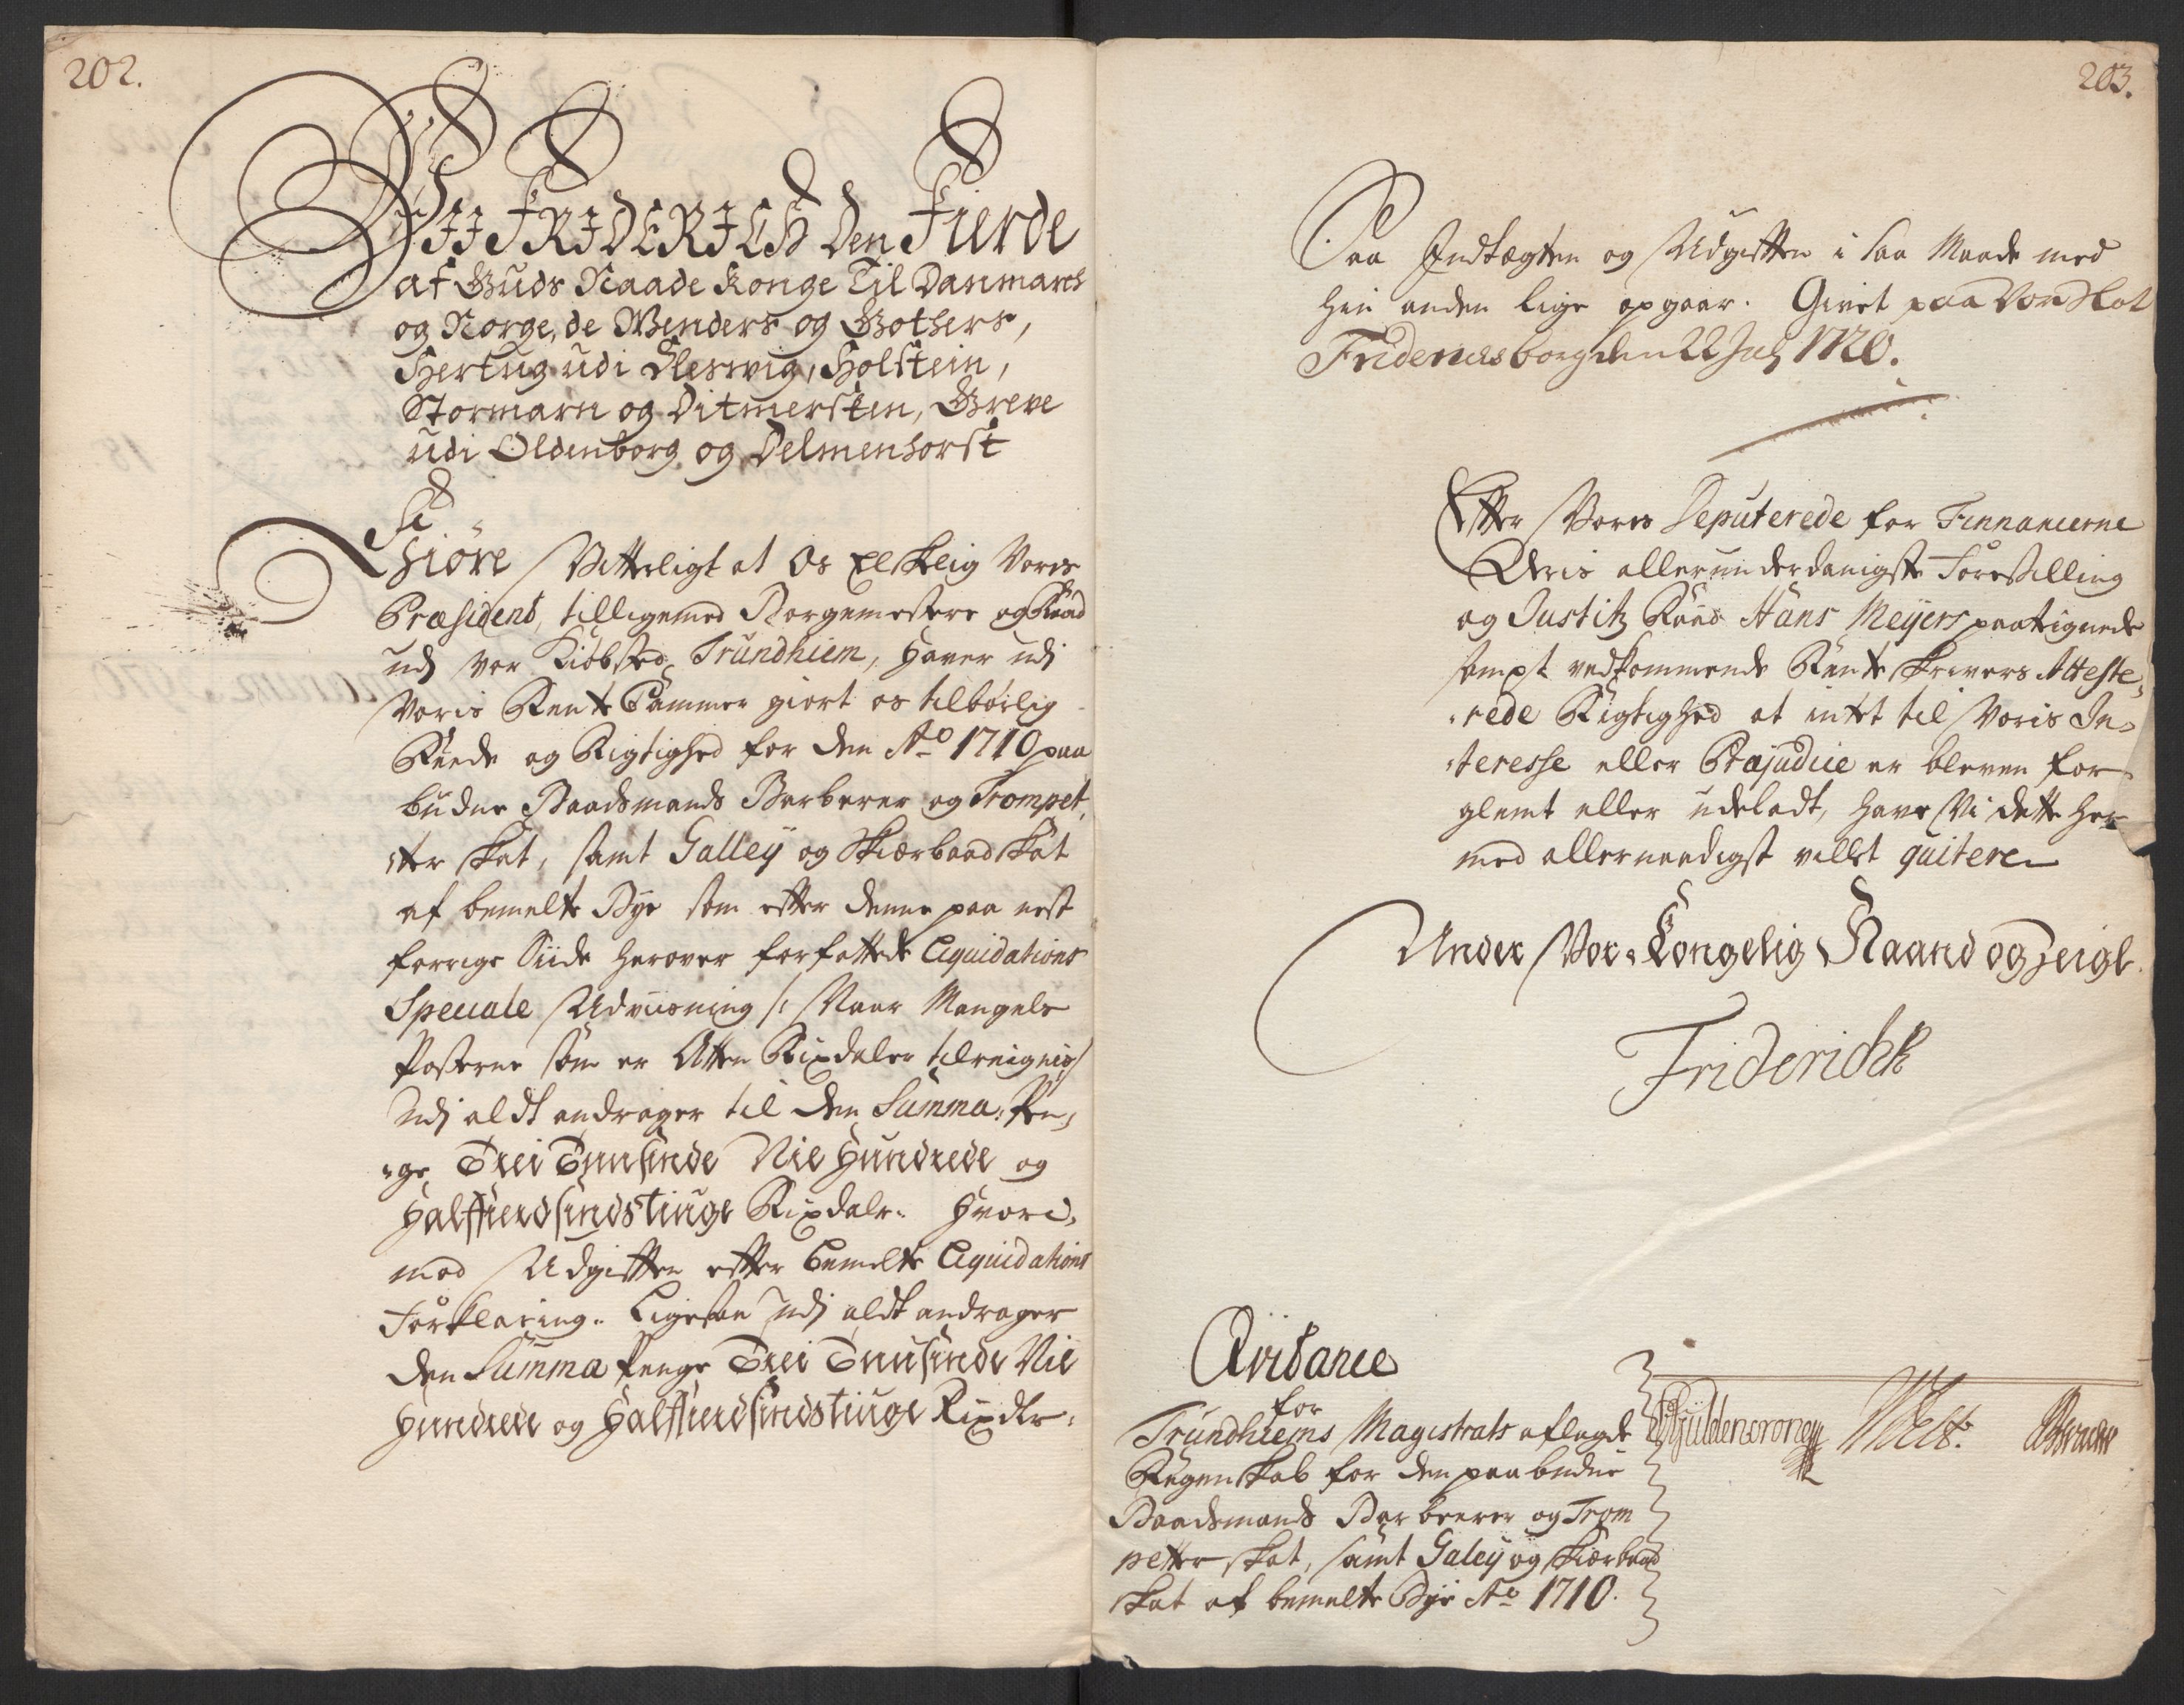 202.
VII FRIDERICH Den Fierde
af Guds Naade Konge Til Danmarch
og Norge, de Wenders og Gothers,
Hertug udi Sleswig, Holstein,
Stormarn og Ditmersken, Greve
udi Oldenborg og Delmenhorst
Giöre Vitterligt at Os Elskelig Voris
Præsident, tilligemed Borgemestere og Raad
udj vor Kiöbsted Trundhiem, haver udj
Voris Rente Cammer giort os tilbörlig
Rede og Rigtighed for den Ao 1710 paa
budne Baadsmands Barberer og Trompet,
ter skat, samt Galley og Skiærbaad skat
af bemelte Bye som efter denne paa nest
forrige Siide herover forfattede Liquidations
Speciale Udviisning /: Naar Mangels
Posterne som er Atten Rixdaler tilreignis /
udj aldt andrager til den Summa Pen,
ge, Trei Tuusinde Nie Hundrede og
Halffierdsindstiuge Rixdaler. Hvori,
mod Udgiften efter bemelte Liquidations
Forklaring. Ligesaa udj aldt andrager
den Summa Penge Trei Tuusinde Nie
Hundrede og Halffierdsindstiuge Rixdlr.
203.
Saa Indtægten og Udgiften i saa Maade med
hin anden lige opgaar. Givet paa Vor Slot
Fridericksborg den 22 July 1720.
Efter Voris Deputerede for Finnancerne
Deris allerunderdanigste Forestilling
og Justitz Raad Hans Meyers paategnede
sampt vedkommende Rente Skrivers Atteste,
rede Rigtighed at intet til Voris In,
teresse eller Præjudice er bleven for,
glemt eller udeladt, have Vi dette her
med allernaadigst villet quitere
Under Vor Kongelig Haand og Zeigl.
Friderich R
Qvitance
for
Trundhiems Magistrats aflagde
Regenskab for den paabudne
Baadsmands Barberer og Trom
petter skat, samt Galey og skiærbaad
skat af bemelte Bye Ao 1710.
Güldencrone